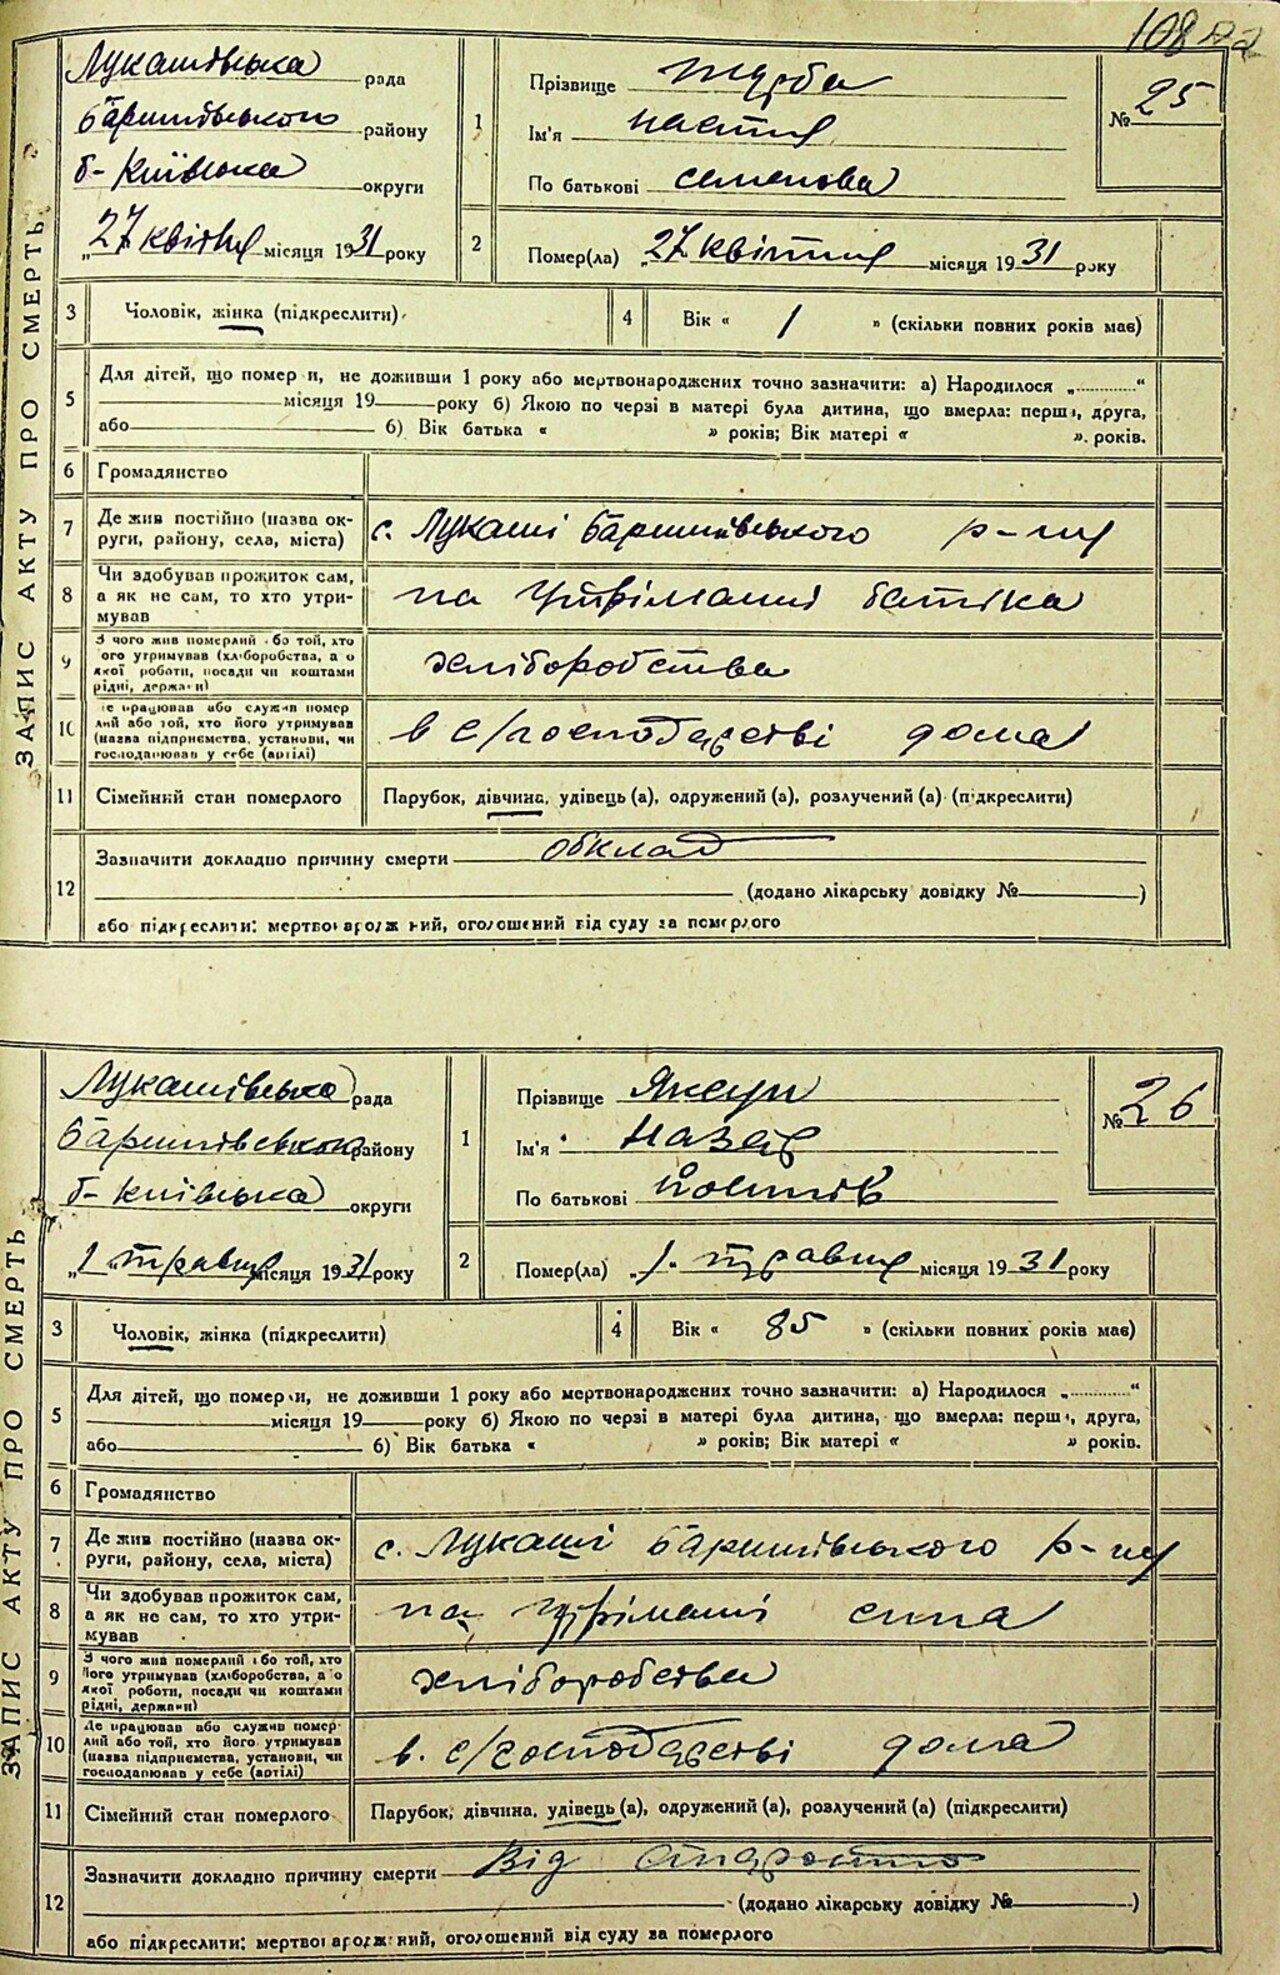 108
ЗАПИС АКТУ ПРО СМЕРТЬ
Лукашівська рада
Баришівського району
б- Київська округи
„27 квітня місяця 1931 року
1
Прізвище Журба
Ім'я Настя
По батькові Семенова
№ 25
2
Помер(ла) „27 квітня місяця 1931 року
3 Чоловік, жінка (підкреслити)
4 Вік « 1 » (скільки повних років має)
5 Для дітей, що помер и, не доживши 1 року або мертвонароджених точно зазначити: а) Народилося „............“
місяця 19 року б) Якою по черзі в матері була дитина, що вмерла: перш , друга,
або б) Вік батька « » років; Вік матері « ». років.
6 Громадянство
7 Де жив постійно (назва ок-
руги, району, села, міста) с. Лукаші Баришівського р-ну
8 Чи здобував прожиток сам,
а як не сам, то хто утри-
мував на утріманні батька
9 З чого жив померлий бо той, хто
ого утримував (хліборобства, а о
якої роботи, посади чи коштами
рідні, держави) хліборобства
10 е працював або служив помер
лий або той, хто його утримував
(назва підприємства, установи, чи
господарював у себе (артілі) в с/господарстві дома
11 Сімейний стан померлого Парубок, дівчина, удівець (а), одружений (а), розлучений (а) (підкреслити)
12 Зазначити докладно причину смерти обклад
(додано лікарську довідку № )
або підкреслити: мертвонароджений, оголошений від суду за померлого
ЗАПИС АКТУ ПРО СМЕРТЬ
Лукашівська рада
Баришівського району
б- Київська округи
„1“ травня місяця 1931 року
1
Прізвище Яксун
Ім'я Назар
По батькові Йосипів
№ 26
2
Помер(ла) „1“ травня місяця 1931 року
3 Чоловік, жінка (підкреслити)
4 Вік « 85 » (скільки повних років має)
5 Для дітей, що помер и, не доживши 1 року або мертвонароджених точно зазначити: а) Народилося „............“
місяця 19 року б) Якою по черзі в матері була дитина, що вмерла: перш , друга,
або б) Вік батька « » років; Вік матері « » років.
6 Громадянство
7 Де жив постійно (назва ок-
руги, району, села, міста) с. Лукаші Баришівського р-ну
8 Чи здобував прожиток сам,
а як не сам, то хто утри-
мував на утріманні сина
9 З чого жив померлий бо той, хто
його утримував (хліборобства, а о
якої роботи, посади чи коштами
рідні, держави) хліборобства
10 Де працював або служив помер
лий або той, хто його утримував
(назва підприємства, установи, чи
господарював у себе (артілі) в. с/господарстві дома
11 Сімейний стан померлого Парубок, дівчина, удівець (а), одружений (а), розлучений (а) (підкреслити)
12 Зазначити докладно причину смерти Від старости
(додано лікарську довідку № )
або підкреслити: мертвонароджений, оголошений від суду за померлого